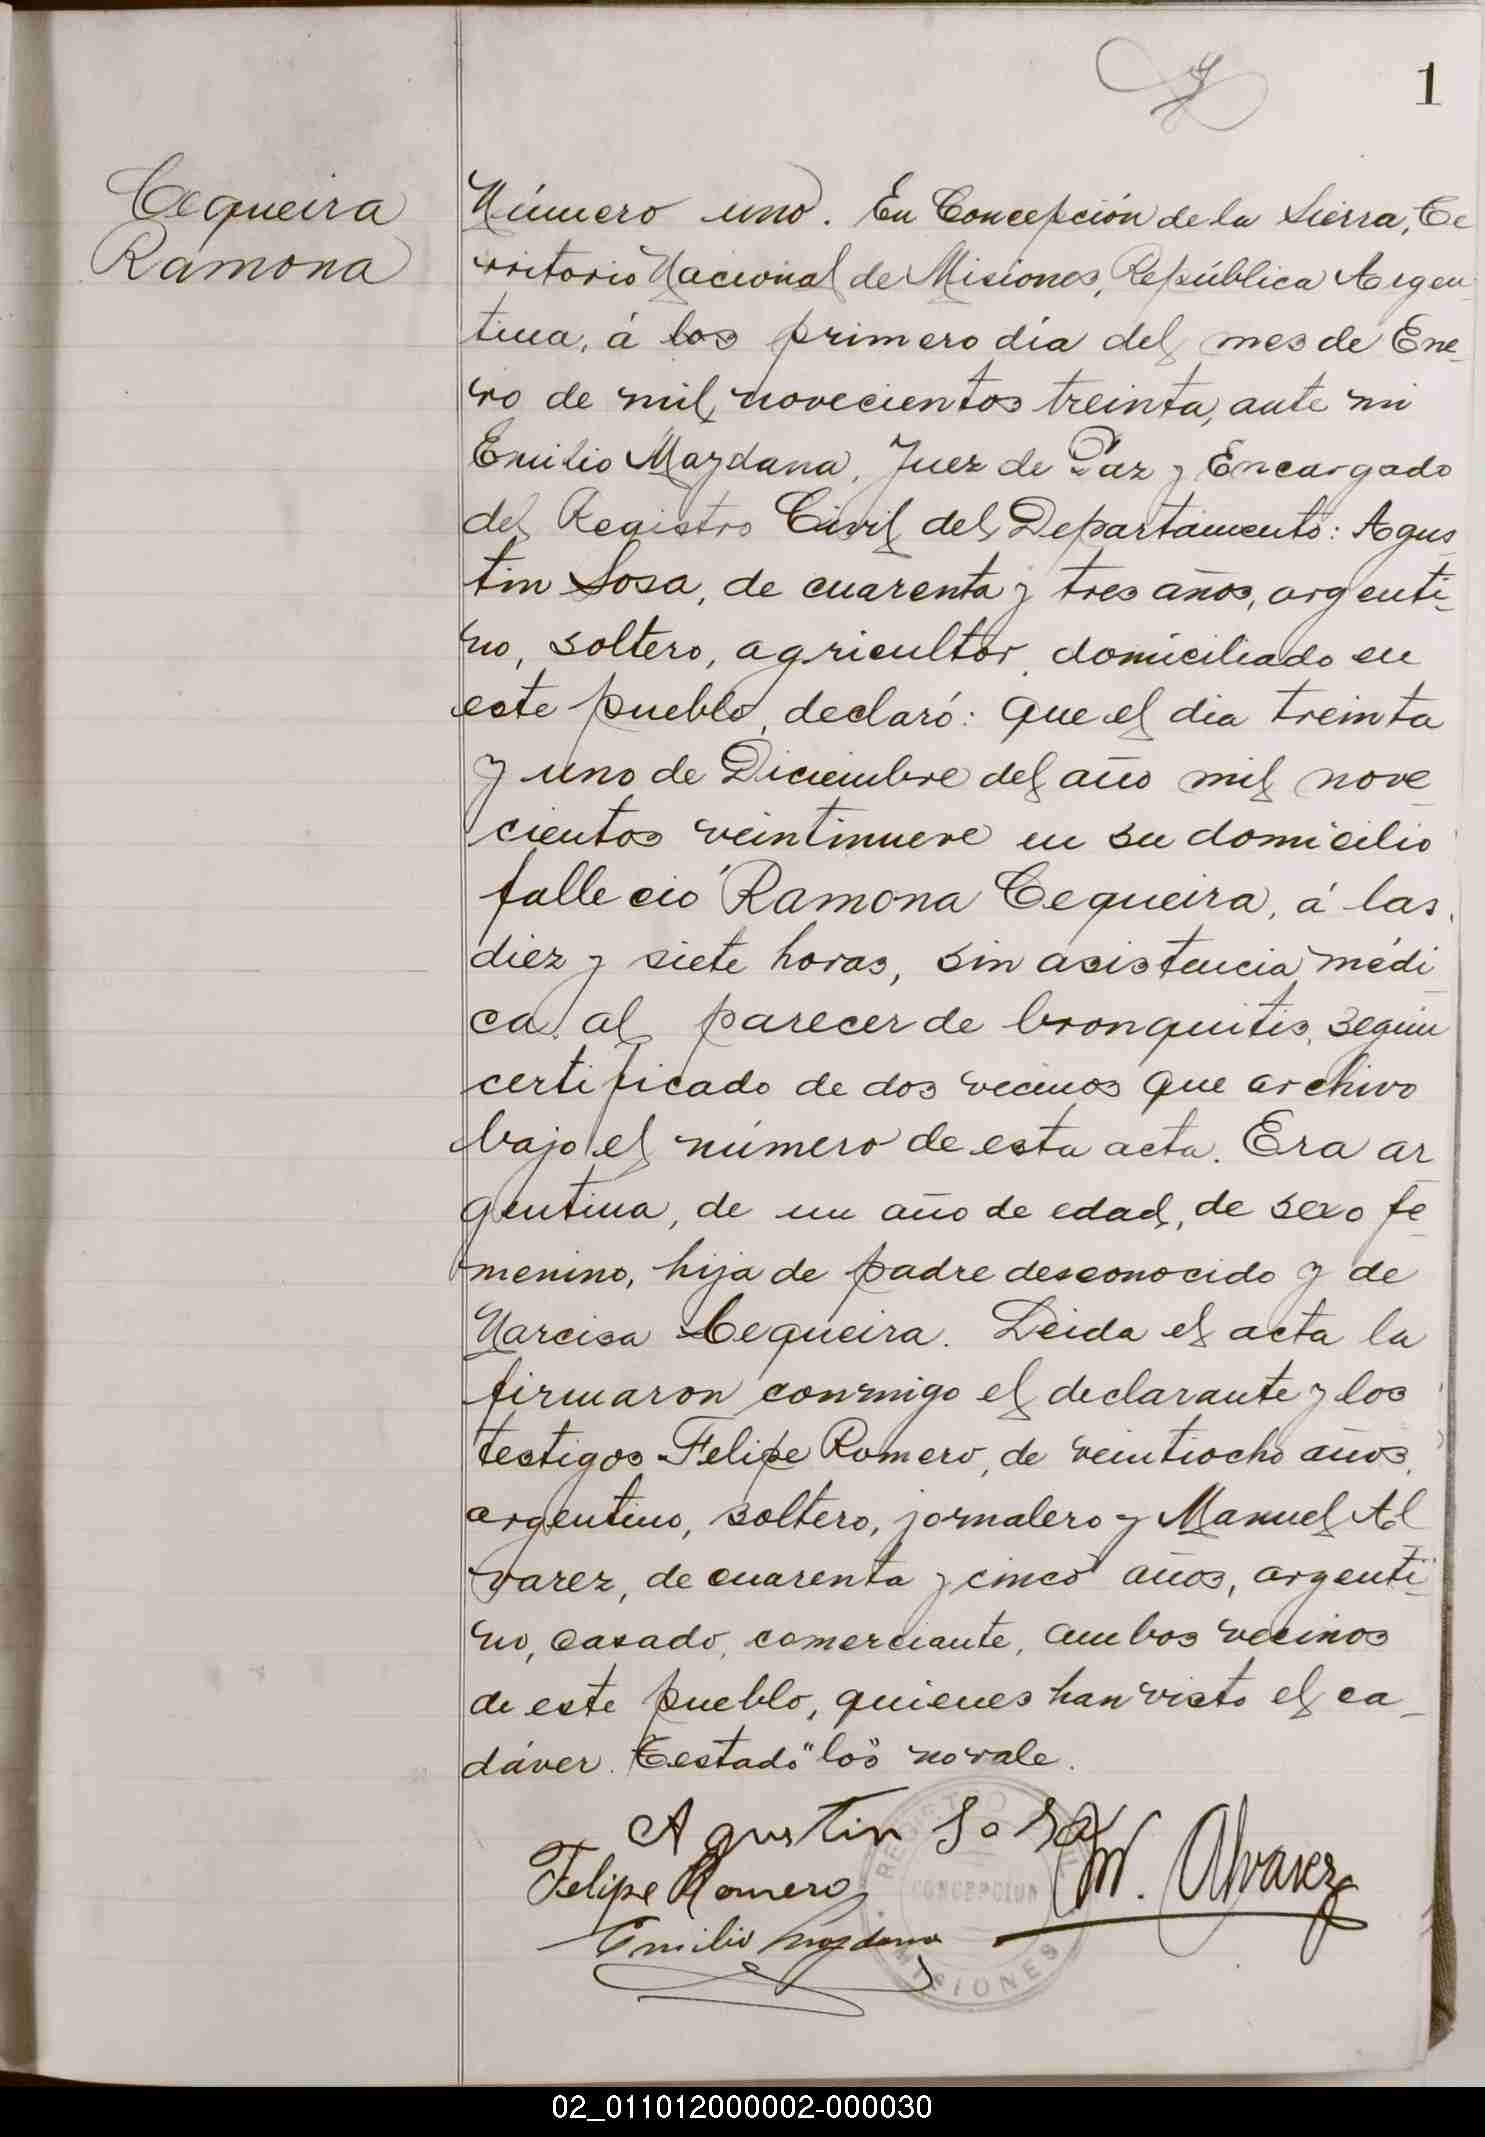 1
Cequeira
Ramona
Número uno. En Concepción de la Sierra, Te
rritorio Nacional de Misiones, República Argen
tina, á los primero día del mes de Ene-
ro de mil novecientos treinta, ante mi
Emilio Mazdana, Juez de Paz y Encargado
del Registro Civil del Departamento: Agus-
tin Sosa, de cuarenta y tres años, argenti-
no, soltero, agricultor, domiciliado en
este pueblo, declaró: Que el dia treinta
y uno de Diciembre del año mil nove
cientos veintinueve en su domicilio
falleció Ramona Cequeira, á las
diez y siete horas, sin asistencia médi
ca al parecer de bronquitis, según
certificado de dos vecinos que archivo
bajo el número de esta acta. Era ar
gentina, de un año de edad, de sexo fe-
menino, hija de padre desconocido y de
Narcisa Cequeira. Leida el acta la
firmaron conmigo el declarante y los
testigos Felipe Romero, de veintiocho años,
argentino, soltero, jornalero y Manuel Al
varez, de cuarenta y cinco años, argenti-
no, casado, comerciante, ambos vecinos
de este pueblo, quienes han visto el ca-
dáver. Testado "los" no vale.
Agustin Sosa
Felipe Romero
M. Alvarez
Emilio Mazdana
REGISTRO
CONCEPCION
MISIONES
02_011012000002-000030